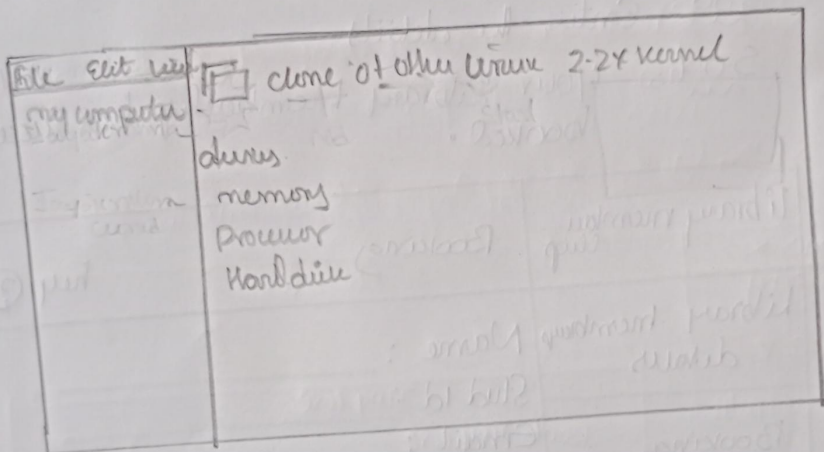 File Edit View
my computer
clone of other Linux 2-2x kernel
devices
memory
Processor
Hard drive